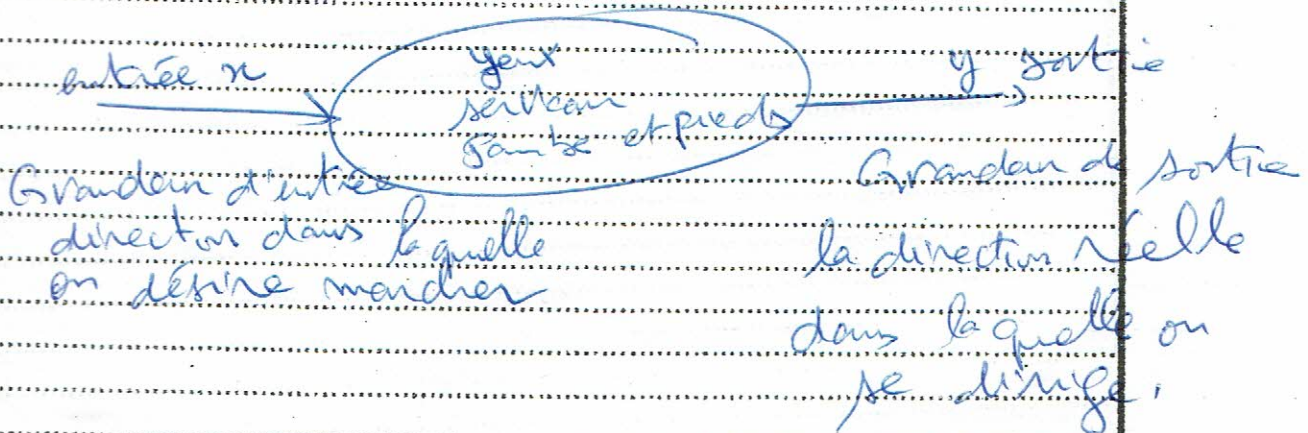 entrée x
yeux
serveau
Jambe et pieds
y sortie
Grandeur d'entrée
direction dans laquelle
on désire marcher
Grandeur de sortie
la direction réelle
dans laquelle on
se dirige.